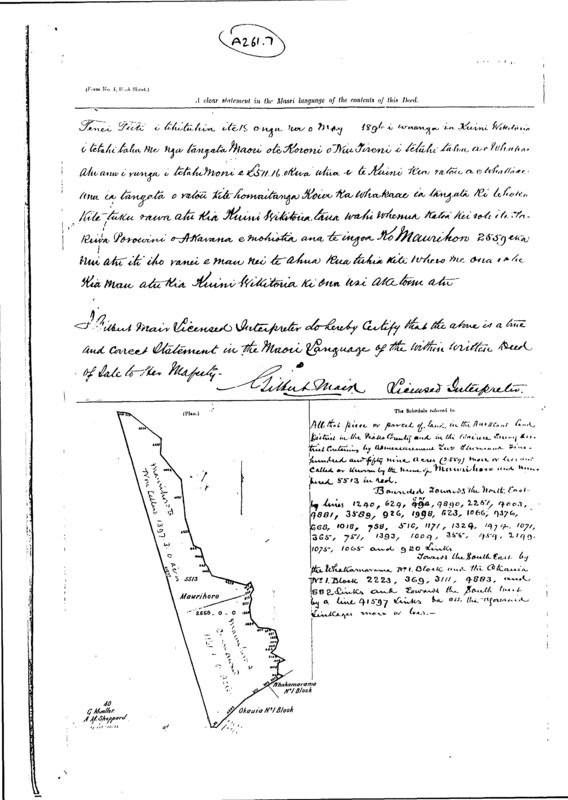 A261.7
(Form No. 4, Back Sheet.)
A clear statement in the Maori language of the contents of this Deed.
Tenei Tiiti i tuhituhia i te 18 o nga ra o May 1896 i waenga ia Kuini Wikitoria
i tetahi taha me nga tangata Maori o te Koroni o Niu Tireni i tetahi taha a e Whakaa
atu ana i runga i tetahi moni e £511.16. kua utua e te Kuini kia ratou a e whakaae
ana ia tangata o ratou ki te homaitanga Koia ka Whakaae ia tangata ki te hoko
Ki te tuku rawa atu kia Kuini Wikitoria taua wahi whenua katoa kei roto i te Ta-
kiwa Porowini o Akarana e mohiotia ana te ingoa Ko Maurihoro 2559 eka
nui atu iti iho ranei e mau nei te ahua kua tuhia ki te
Kia mau atu kia Kuini Wikitoria ki ona uri Ake tonu atu
I Gilbert Mair Licensed Interpreter do hereby Certify that the above is a true
and correct Statement in the Maori Language of the within written Deed
of Sale to Her Majesty.
Gilbert Mair Licensed Interpreter
(Plan.)
Maurihoro B
1397 3 0
5513
Maurihoro
2559. 0. 0
Whakamarama
No 1 Block
Okauia No 1 Block
40
G Mueller
A M Sheppard
The Schedule referred to.
All that piece or parcel of land, in the Auckland Land
District in the Piako County and in the Wairere Survey Dis-
trict Containing by admeasurement Two Thousand Five
hundred and fifty nine acres (2559) more or less and
called or known by the name of Maurihoro and num-
bered 5513 in red.
Bounded Towards the North East
by lines 1240, 624, 4890, 2251, 4003,
4881, 3589, 926, 1998, 623, 1066, 4376,
668, 1018, 758, 516, 1171, 1324, 1474, 1071,
365, 751, 1393, 1004, 355, 454, 2149,
1075, 1065 and 920 Links
Towards the South East by
the Whakamarama No 1. Block and the Okauia
No 1. Block 2223, 369, 3111, 4883, and
882 Links and Towards the South West
by a line 41597 Links be all the aforesaid
Linkages more or less.—